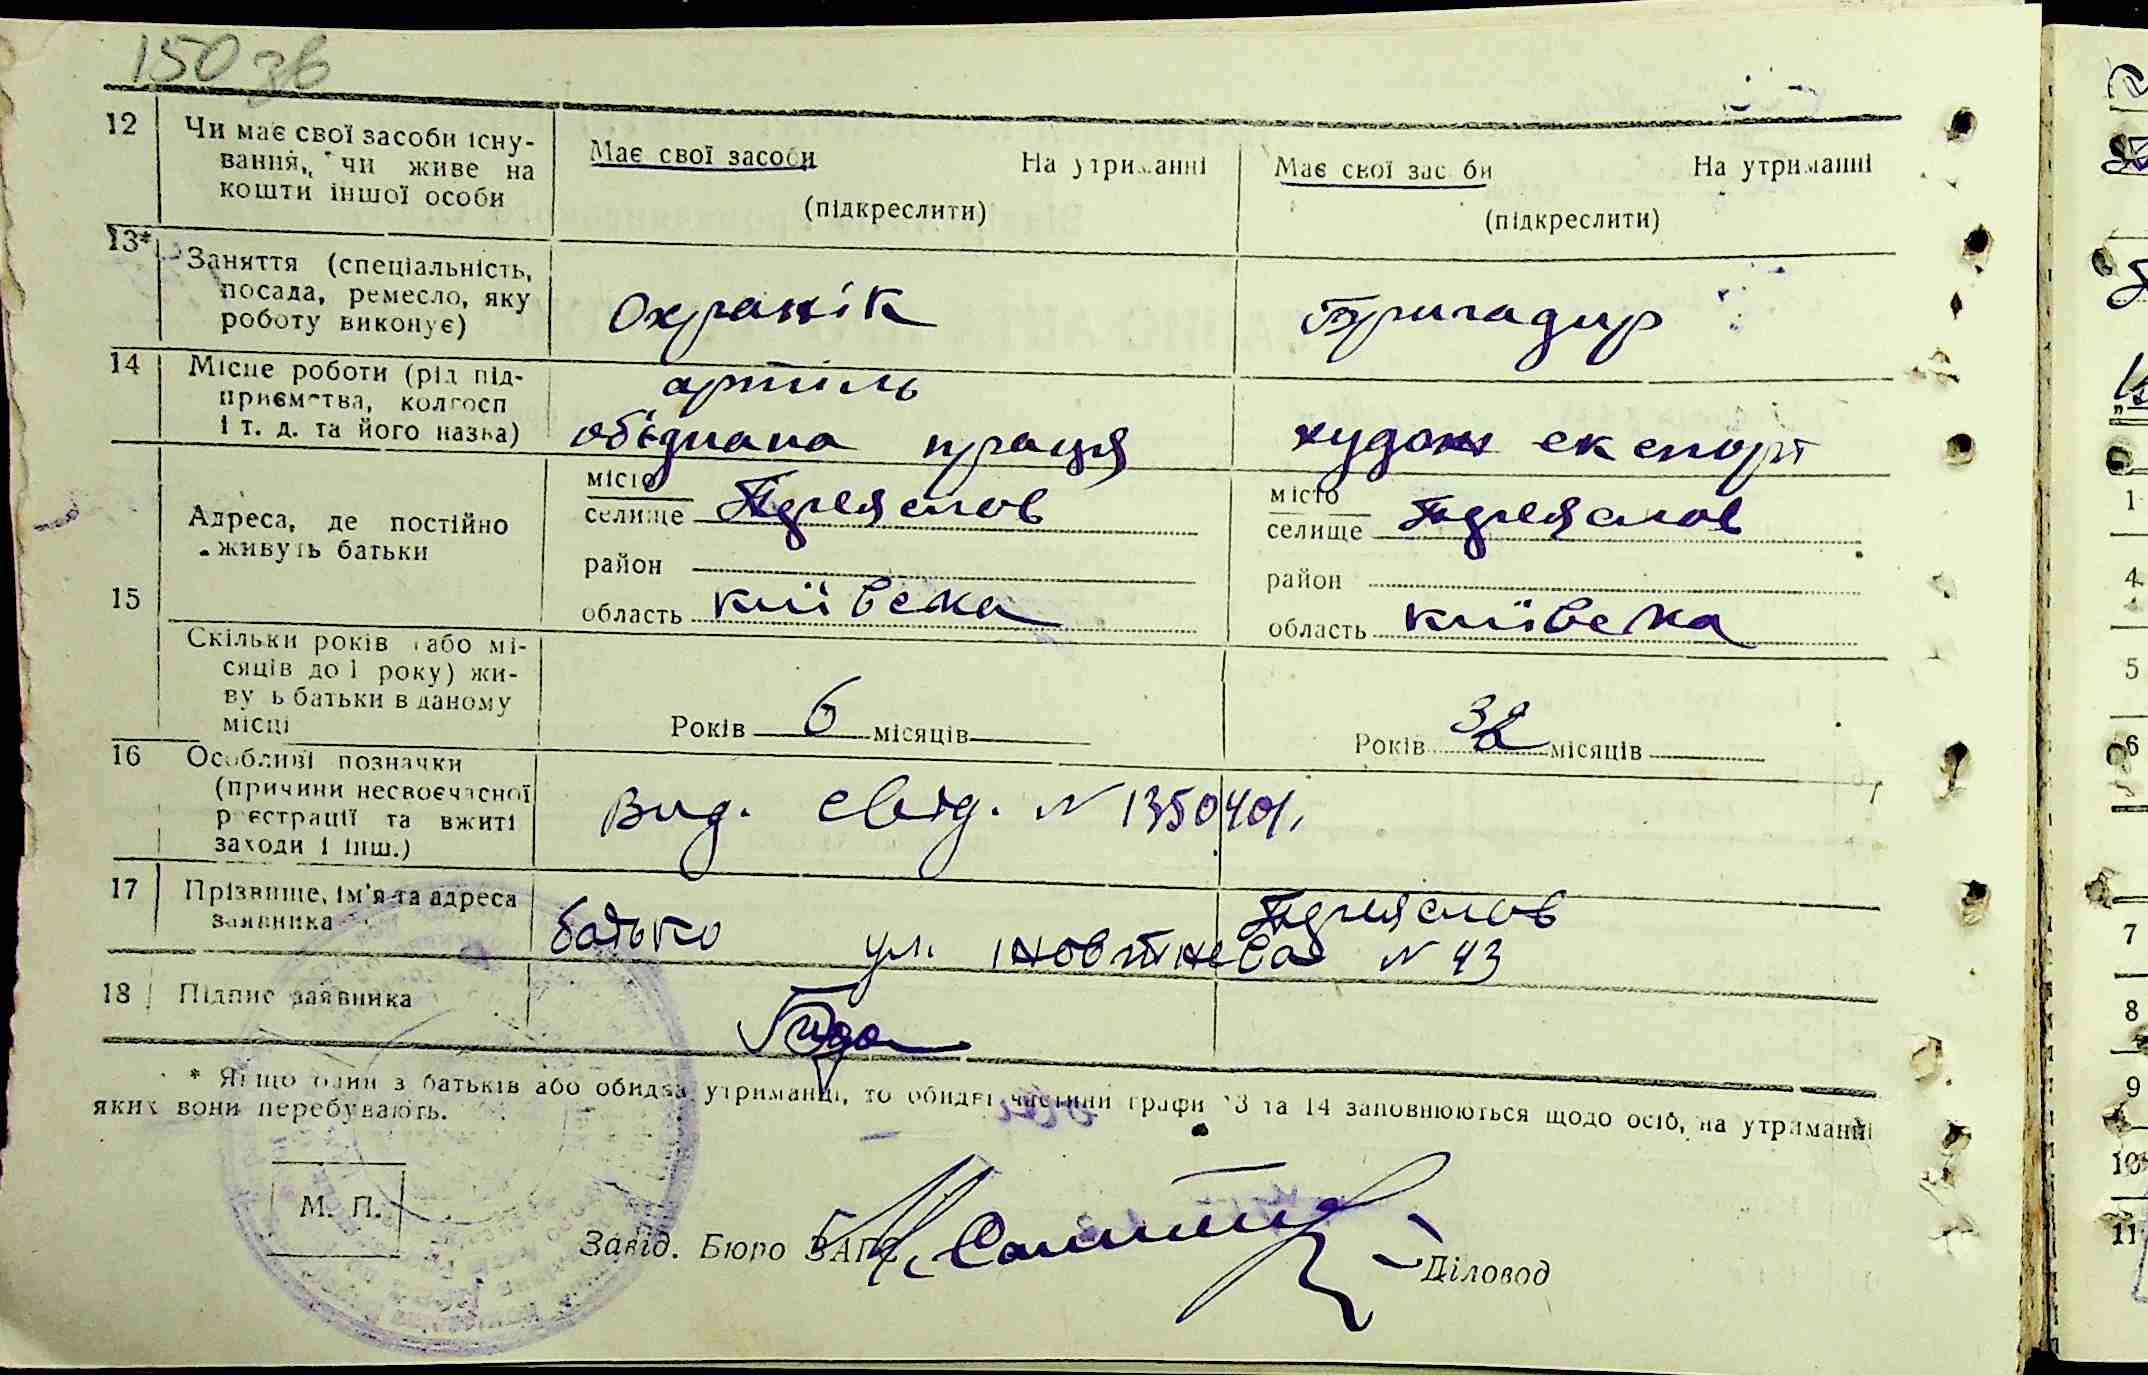 150 зв
12 Чи має свої засоби існу-
вання, чи живе на
кошти іншої особи
Має свої засоби На утриманні
(підкреслити)
Має свої зас би На утриманні
(підкреслити)
13* Заняття (спеціальність,
посада, ремесло, яку
роботу виконує)
Охранік
Бригадир
14 Місце роботи (рід під-
приємства, колгосп
і т. д. та його назва)
артіль
обєднана праця
худож експорт
15
Адреса, де постійно
живуть батьки
місто
селище Переяслов
район
область київська
місто
селище Переяслов
район
область київська
Скільки років (або мі-
сяців до 1 року) жи-
ву ь батьки в даному
місці
Років 6 місяців
Років 32 місяців
16 Особливі позначки
(причини несвоєчасної
реєстрації та вжиті
заходи і інш.)
Вид. свід. N 1350401,
17 Прізвище, ім'я та адреса
заявника
Переяслов
батько ул. жовтнева N 43
18 Підпис заявника
* Якщо один з батьків або обидва утриманці, то обидві частини графи 13 та 14 заповнюються щодо осіб, на утриманні
яких вони перебувають.
М. П.
Завід. Бюро ЗАГС
Діловод
1
4
5
6
7
8
9
10
11